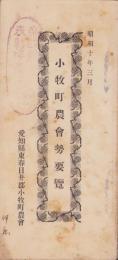 昭和十年三月
小牧町農會勢要覽
愛知縣東春日井郡小牧町農會